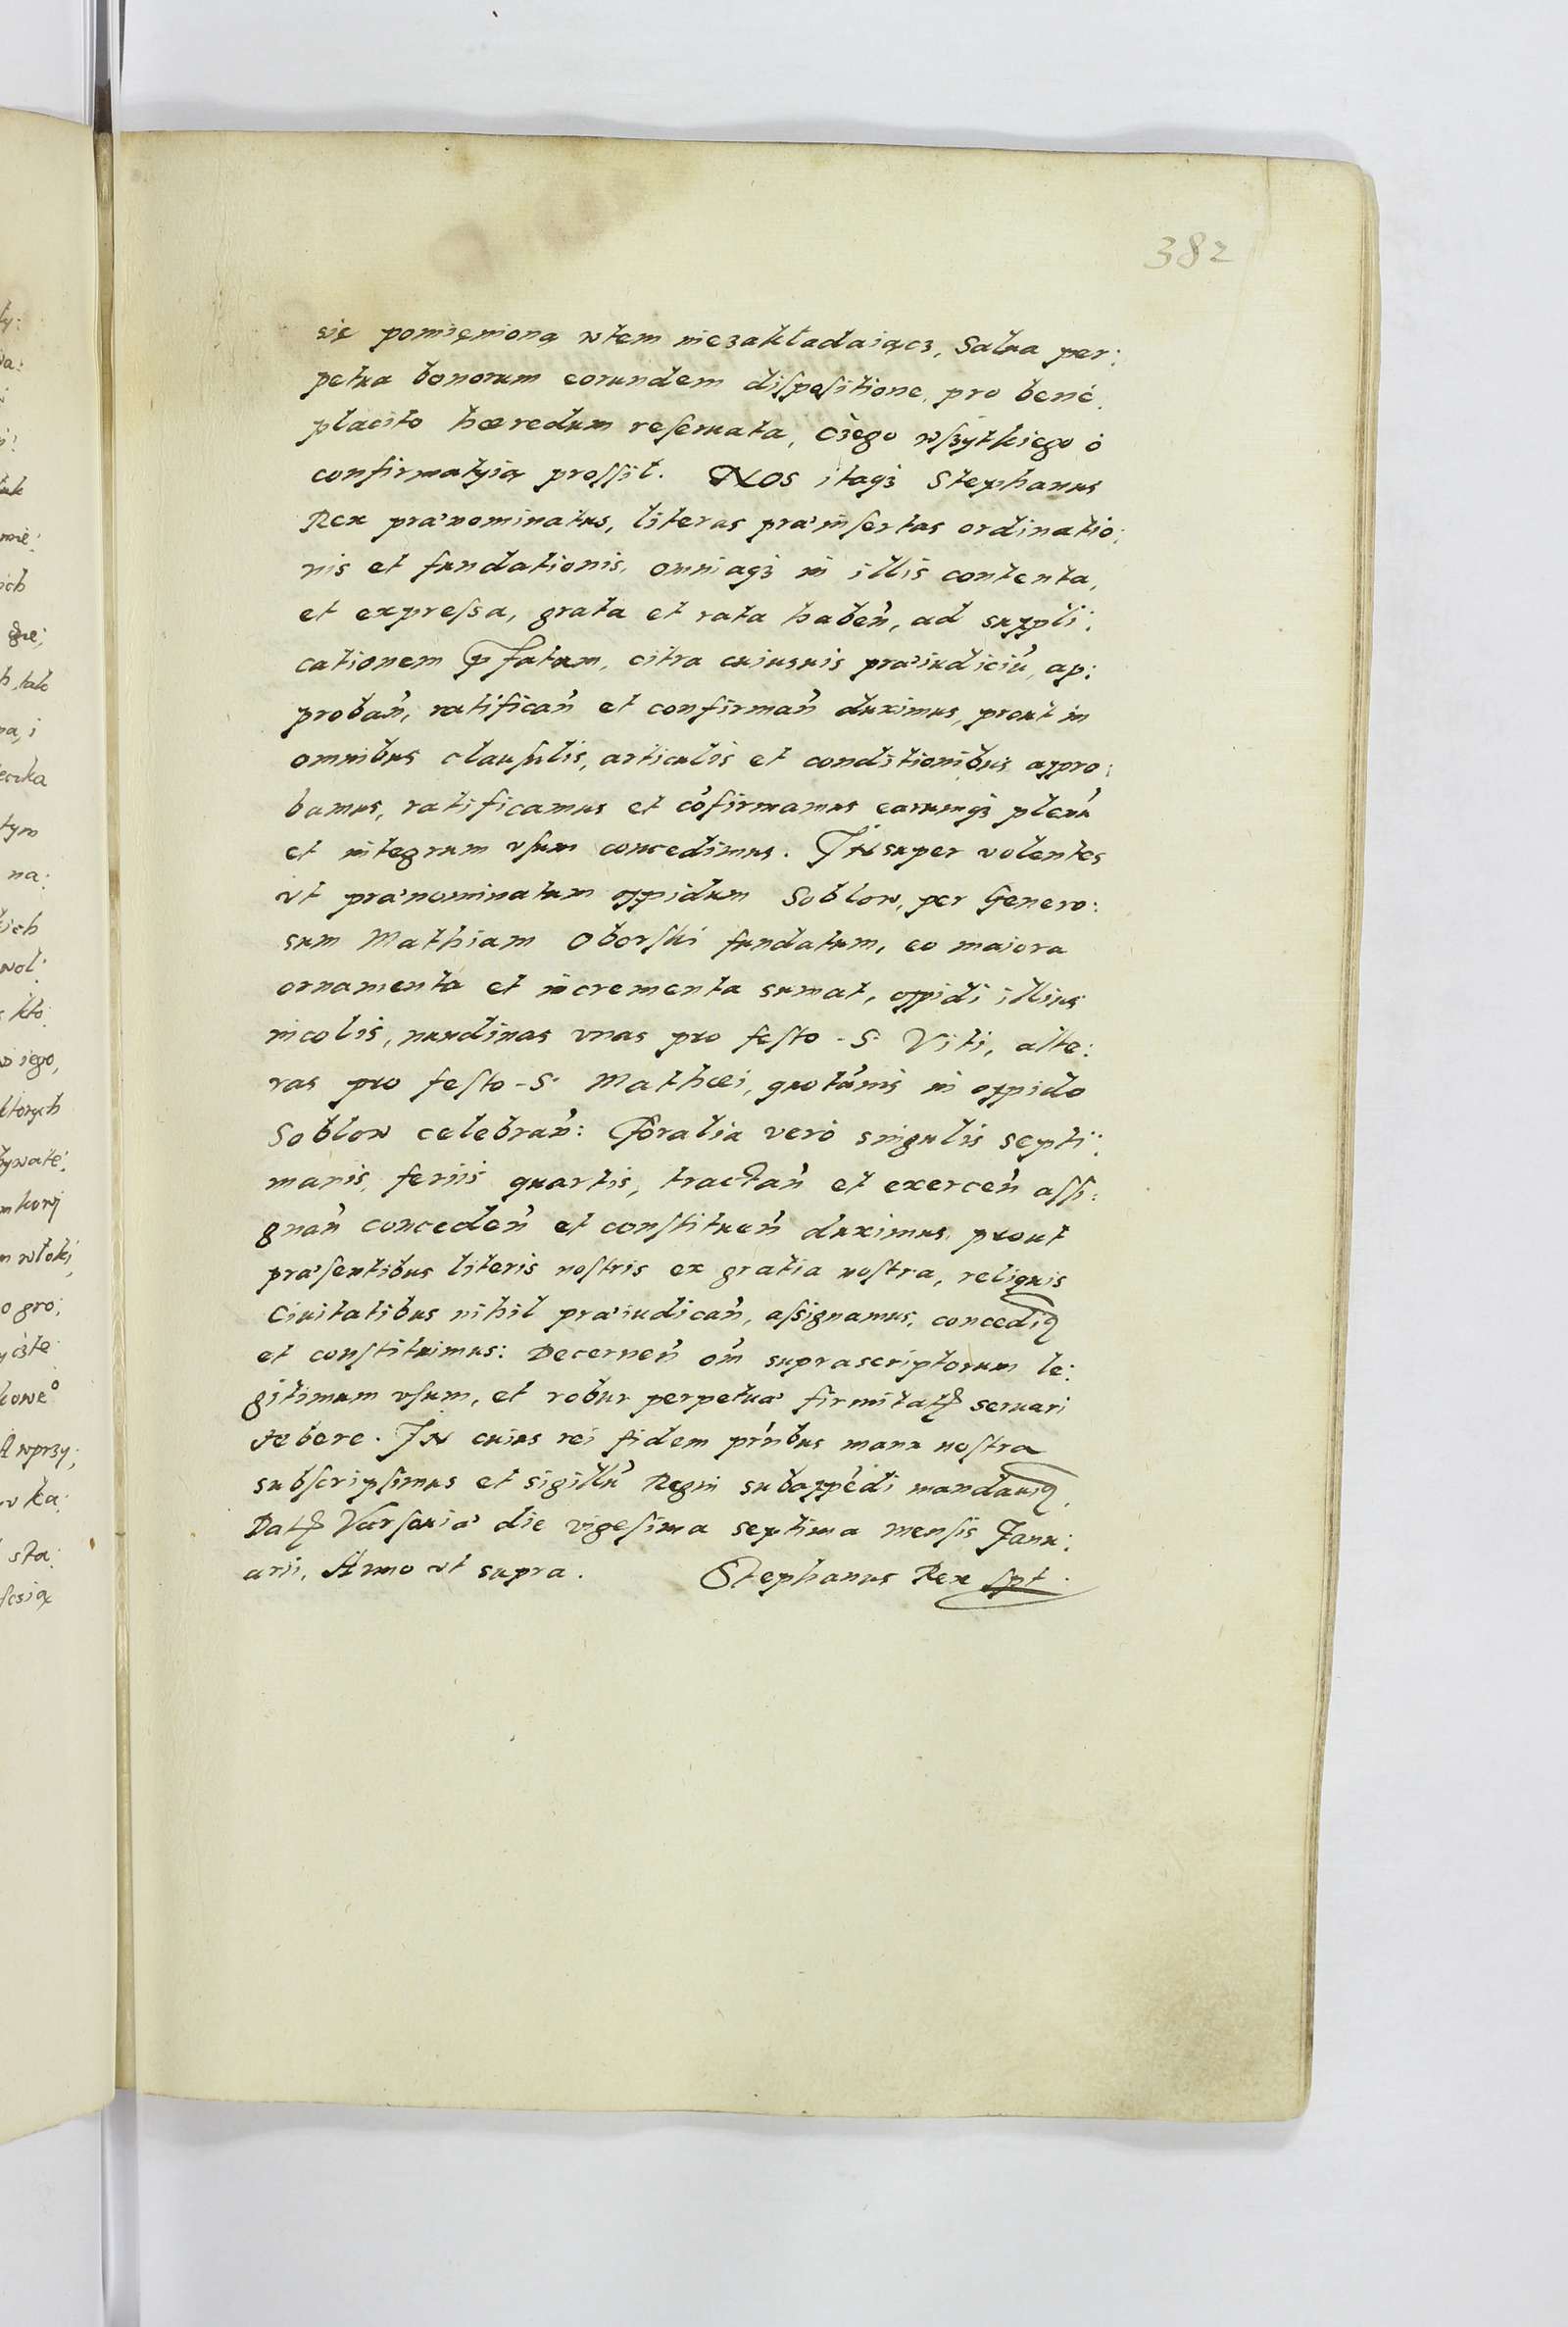 382
się pomięnioną wtem niezakładaiącz, Salua per:
petua bonorum eorundem dispositione, pro bene:
placito hæredum reseruata, czego wszytkiego ó
confirmatyią prossił. Nos itaq3 Stephanus
Rex prænominatus, literas præinsertas ordinatio:
nis et fundationis, omniaq3 in illis contenta,
et expressa, grata et rata haben̄, ad suppli:
cationem p̄fatam, citra cuiusuis præiudiciū, ap:
proban̄, ratifican̄ et confirman̄ duximus, prout in
omnibus clausulis, articulis et conditionibus appro:
bamus, ratificamus et cōfirmamus earumq3 plenū
et integrum vsum concedimus. Insuper volentes
vt prænominatum oppidum Soblow, per Genero:
sum Mathiam Oborski fundatum, eo maiora
ornamenta et incrementa sumat, oppidi illius
incolis, nundinas vnas pro festo S. Viti, alte:
ras pro festo S. Mathæi, quotānis in oppido
Soblow celebran̄: Foralia verò singulis septi:
manis, feriis quartis, tractan̄ et exercen̄ assi:
gnan̄ conceden̄ et constituen̄ duximus, prout
præsentibus literis nostris ex gratia nostra, reliquis
Ciuitatibus nihil præiudican̄, assignamus, concediꝯ
et constituimus: Decernen̄ om̄ suprascriptorum le:
gitimum vsum, et robur perpetuæ firmitatꝭ seruari
debere. In cuius rei fidem pr̄ntibus manu nostra
subscripsimus et sigillū Regni subappēdi mandauiꝯ.
Datꝭ Varsauiæ die vigesima septima mensis Janu:
arii, Anno vt supra. Stephanus Rex spt.